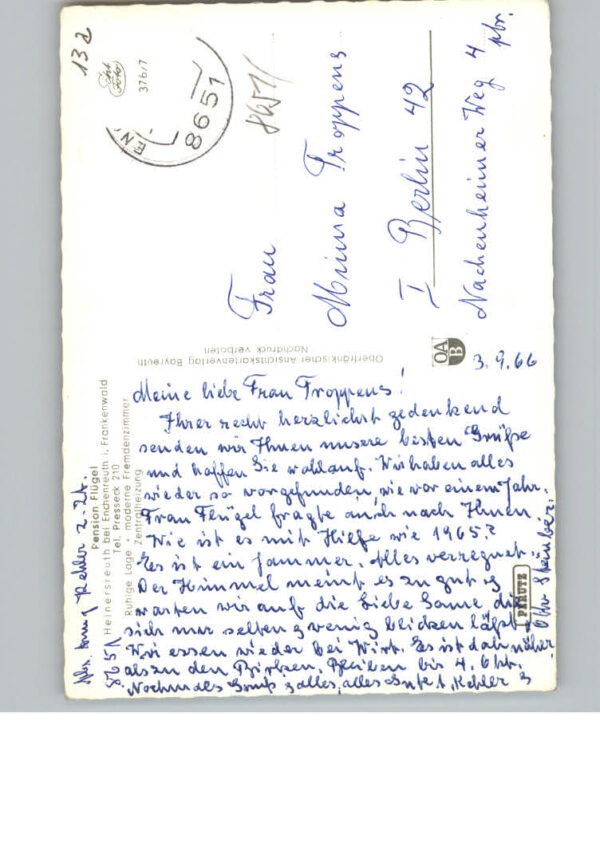 13a
Foto
376/7
EN
8651
8651
Frau
Minna Troppens
I Berlin 42
Nackenheimer Weg 4
ptr.
Oberfränkischer Ansichtskartenverlag Bayreuth
Nachdruck verboten
OA
B
PERUTZ
Pension Flügel
Heinersreuth bei Enchenreuth i. Frankenwald
Tel. Presseck 210
Ruhige Lage • moderne Fremdenzimmer
Zentralheizung
3.9.66
Meine liebe Frau Troppens!
Ihrer recht herzlichst gedenkend
senden wir Ihnen unsere besten Grüße
und hoffen Sie wohlauf. Wir haben alles
wieder so vorgefunden, wie vor einem Jahr.
Frau Flügel fragte auch nach Ihnen.
Wie ist es mit Hilfe wie 1965?
Es ist ein Jammer. Alles verregnet.
Der Himmel meint es zu gut &
warten wir auf die liebe Sonne die
sich nur selten & wenig blicken läßt.
Wir essen wieder bei Wirt. Es ist dah näher
als zu den Birken. Bleiben bis 4. Okt.
Nochmals Gruß & alles, alles Gute A. Kehler &
Otto Steinber.
Abs. Kehler z. Zt.
8651